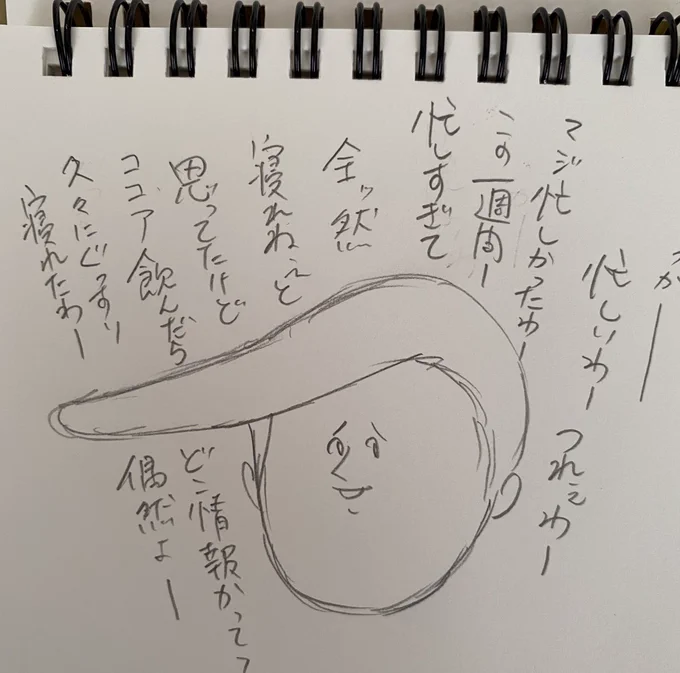 つかー
忙しいわー
つれぇわー
マジ忙しかったわー
この一週間ー
忙しすぎて
全ッ然
寝れねぇと
思ってたけど
ココア飲んだら
久々にぐっすり
寝れたわー
どこ情報かって?
偶然よー